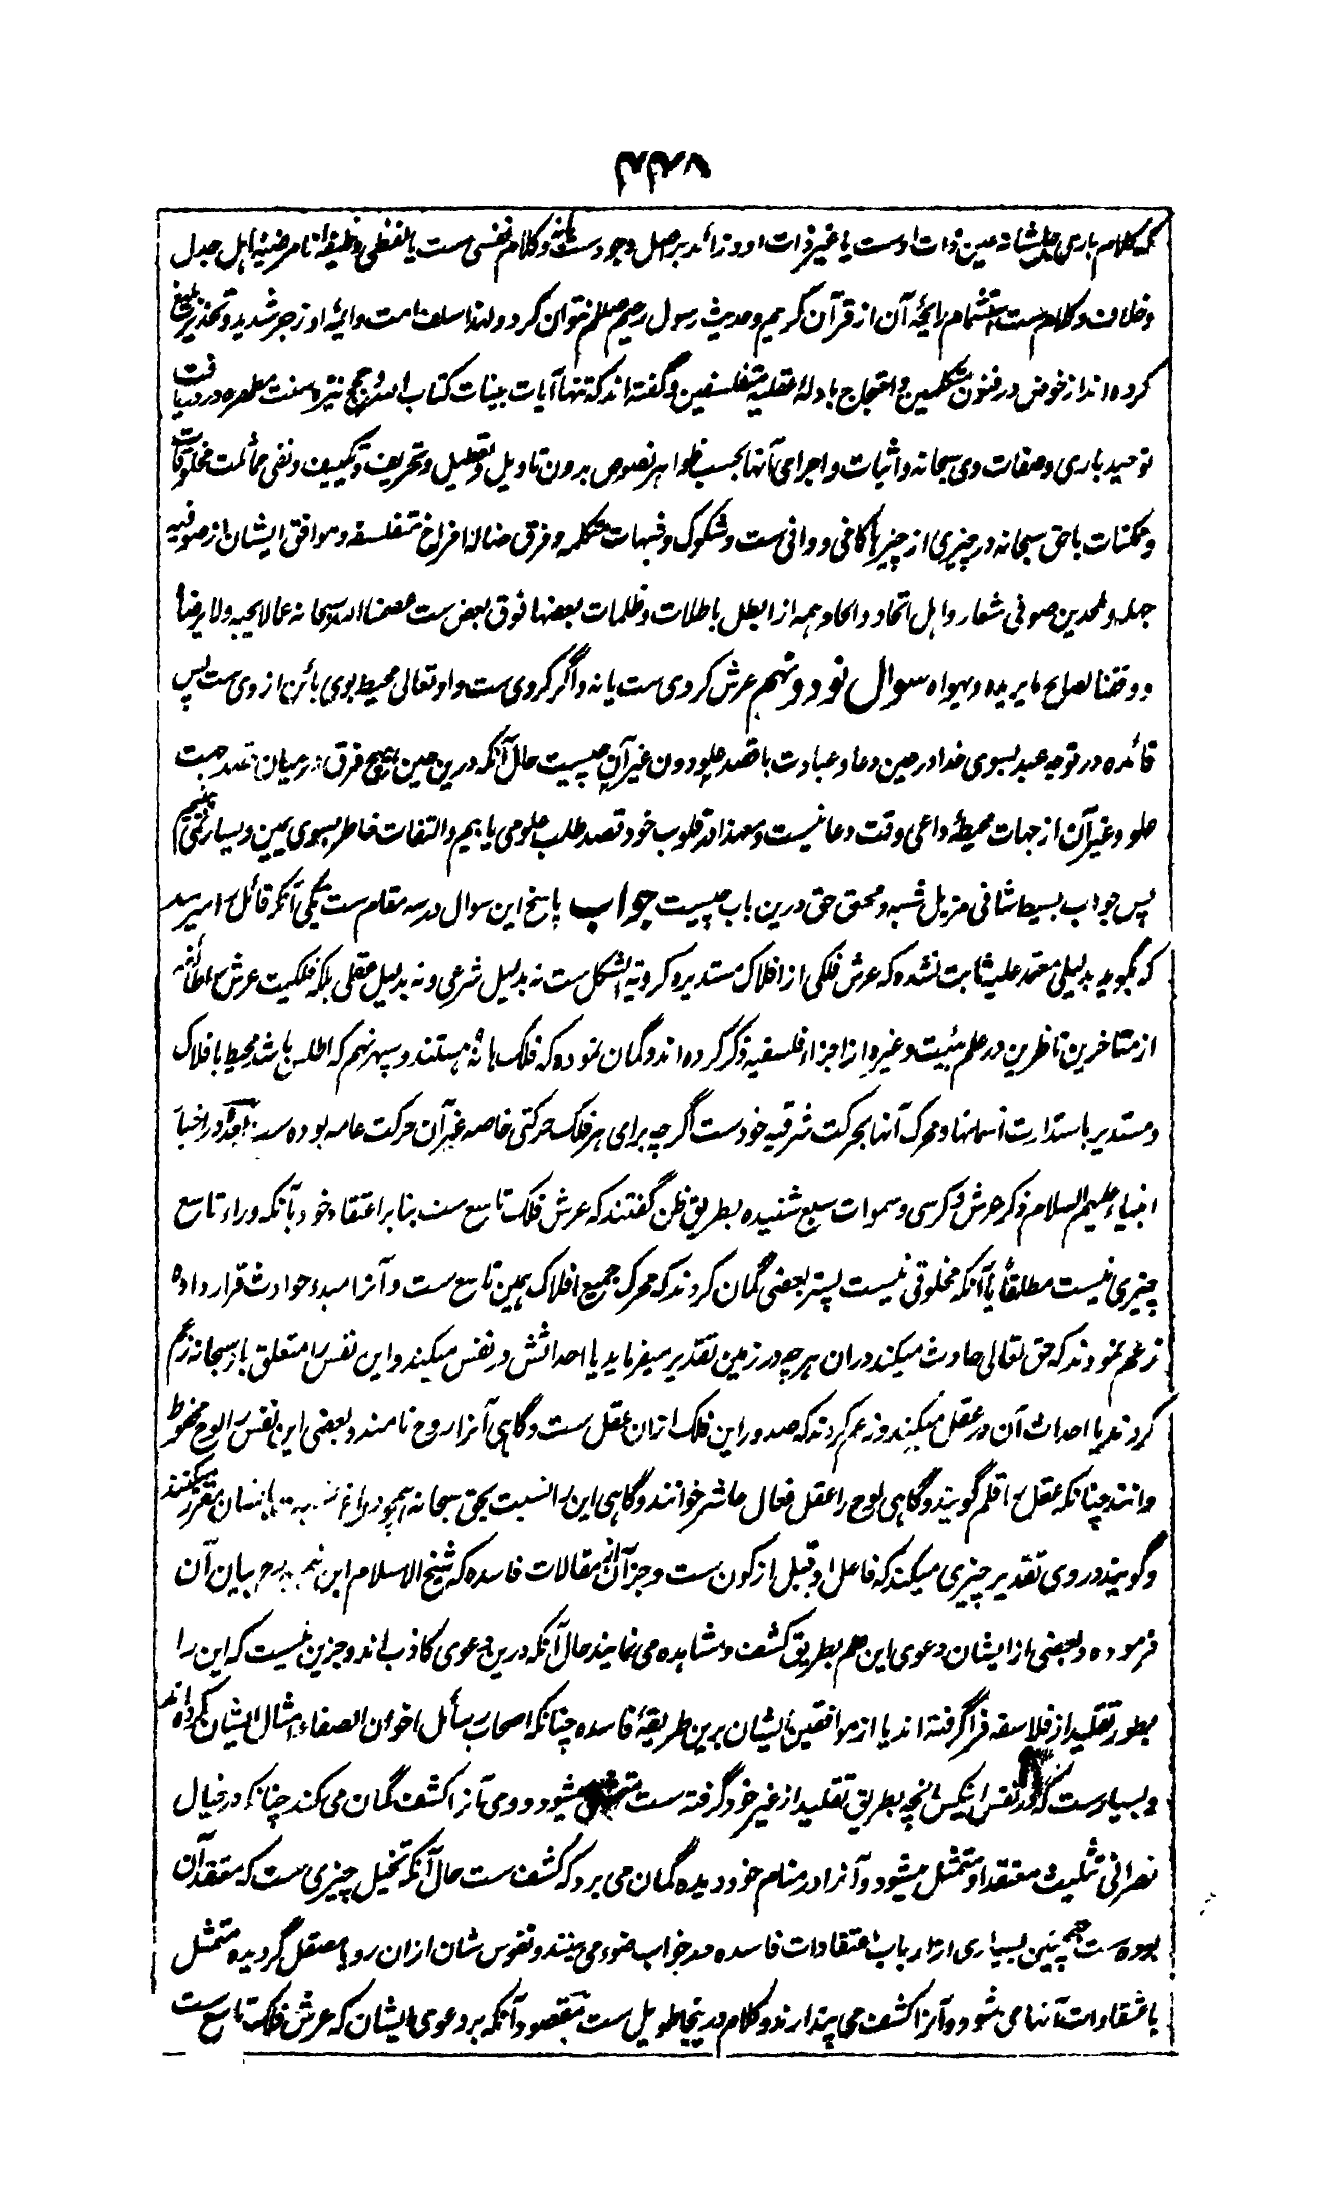 که کلام باری جل شانه عین ذات اوست یا غیر ذات او و زائد بر اصل وجودست و کلام نفسی ست یا لفظی وظیفهٔ نامرضیهٔ اهل جدل
و خلاف و کلام ست استشمام رائحهٔ آن از قرآن کریم و حدیث رسول رحیم صللم نتوان کرد و لهذا سلف امت و ائمهٔ او زجر شدید و تحذیر بلیغ
کرده اند از خوض در فنون متکلمین و احتجاج بادلهٔ عقلیه متفلسفین و گفته اند که تنها آیات بینات کتاب الله و حجج نیره سنت مطهره در دریافت
توحید باری و صفات وی سبحانه و اثبات و اجرای آنها بحسب ظواهر نصوص بدون تاویل و تعطیل و تحریف و تکییف و نفی مماثلت مخلوقات
و ممکنات با حق سبحانه در چیزی از چیزها کافی و وافی ست و شکوک و شبهات متکلمه و فرق ضاله افراخ متفلسفه و موافق ایشان از صوفیه
جهله و ملحدین صوفی شعار و اهل اتحاد و الحاد همه از ابطل باطلات و ظلمات بعضها فوق بعض ست عصمنا الله سبحانه عما لا یحبه ولا یرضاه
و وفقنا لصالح ما یریده و یهواه سوال نود و نهم عرش کروی ست یا نه و اگر کروی ست و او تعالی محیط بوی بائن از وی ست پس
فائده در توجه عبد بسوی خدا در حین دعا و عبادت با قصد علو دون غیر آن چیست حال آنکه درین حین هیچ فرق در میان قصد جهت
علو و غیر آن از جهات محیطهٔ داعی وقت دعا نیست و معهذا در قلوب خود قصد طلب علو می یابیم و التفات خاطر بسوی یمین و یسار نمی بینیم
پس جواب بسیط شافی مزیل شبهه و محقق حق درین باب چیست جواب پاسخ این سوال در سه مقام ست یکی آنکه قائل را میرسد
که بگوید بدلیلی معتمد علیه ثابت نشده که عرش فلکی از افلاک مستدیره کرویة الشکل ست نه بدلیل شرعی و نه بدلیل عقلی بلکه فلکیت عرش را طائفه
از متاخرین ناظرین در علم هیئت و غیره از اجزاء فلسفیه ذکر کرده اند و گمان نموده که فلک ها نُه هستند و سپهر نهم که اطلس باشد محیط بافلاک
و مستدیر باستدارت آسمانها و محرک آنها بحرکت شرقیه خودست گرچه برای هر فلک حرکتی خاصه غیر آن حرکت عامه بوده در اخبار
انبیاء علیهم السلام ذکر عرش و کرسی و سموات سبع شنیده بطریق ظن گفتند که عرش فلک تاسع ست بنا بر اعتقاد خود بآنکه وراء تاسع
چیزی نیست مطلقاً یا آنکه مخلوقی نیست پستر بعضی گمان کردند که محرک جمیع افلاک همین تاسع ست و آنرا مبدء حوادث قرار داده
زعم نمودند که حق تعالی حادث میکند در ان هر چه در زمین تقدیر میفرماید یا احداثش در نفس میکند و این نفس را متعلق بار سبحانه زعم
کردند یا احداث آن در عقل میکنند و زعم کردند که صدور این فلک ازان عقل ست و گاهی آنرا روح نامند و بعضی این نفس را لوح محفوظ
دانند چنانکه عقل را قلم گویند و گاهی لوح را عقل فعال عاشر خوانند و گاهی این را نسبت بحق سبحانه همچو دماغ نسبت بانسان مقرر میکنند
و گویند در وی تقدیر چیزی میکند که فاعل او قبل از کون ست و جز آن از مقالات فاسده که شیخ الاسلام ابن تیمیه رح بیان آن
فرموده و بعضی از ایشان دعوی این علم بطریق کشف و مشاهده می نمایند حال آنکه درین دعوی کاذب اند و جزین نیست که این را
بطور تقلید از فلاسفه فرا گرفته اند یا از موافقین ایشان برین طریقهٔ فاسده چنانکه اصحاب رسائل اخوان الصفاء و امثال ایشان کرده اند
و بسیارست که در نفس اینکس آنچه بطریق تقلید از غیر خود گرفته ست متمثل میشود و وی آنرا کشف گمان می کند چنانکه در خیال
نصرانی تثلیث معتقد او متمثل میشود و آنرا در منام خود دیده گمان می برد که کشف ست حال آنکه تخیل چیزی ست که معتقد آن
بوده ست همچنین بسیاری از ارباب اعتقادات فاسده در خواب ضوء می بینند و نفوس شان ازان رویا صقل گردیده متمثل
باعتقادات آنها می شود و آنرا کشف می پندارند و کلام درینجا طویل ست مقصود آنکه بر دعوی ایشان که عرش فلک تاسع ست